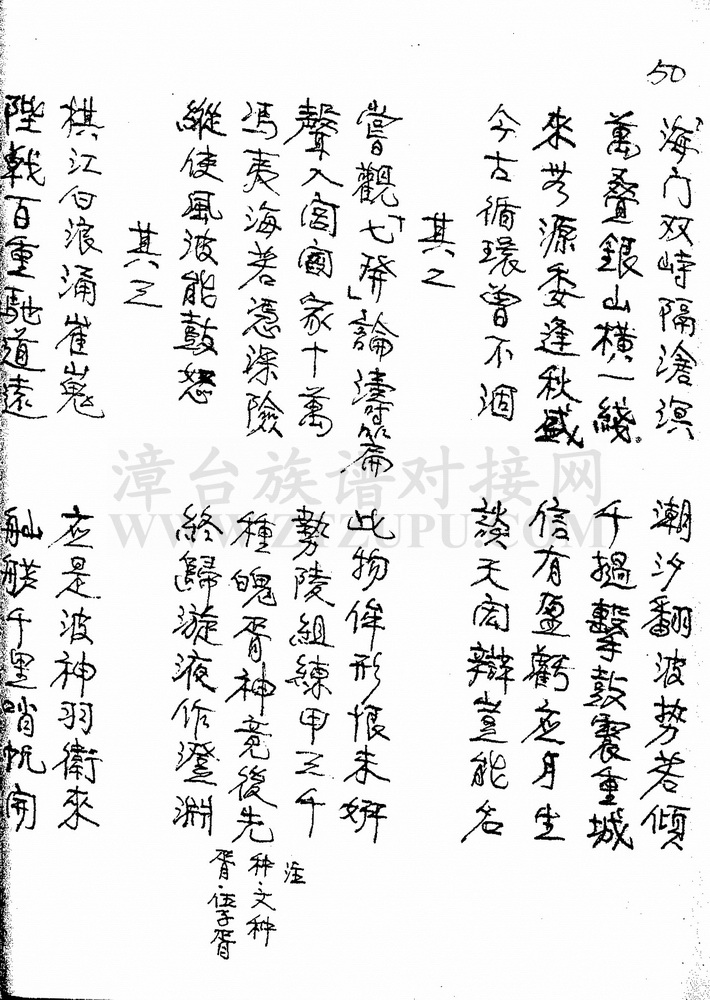 50
海门双峙隔滄溟 潮汐翻波势若傾
萬疊銀山横一綫 千撾擊鼓震重城
來岑源委逢秋盛 信有盈虧应月生
今古循環曾不涸 談天宏辯豈能名
其之
嘗觀「七發」論濤篇 此物侔形恨未妍
聲入宮商家十萬 势陵組練甲三千
馮夷海若憑深險 種魄胥神竞後先
縱使風波能鼓怒 終歸漩液作澄淵
注
种文种
胥·伍子胥
其三
棋江白浪涌崔嵬 应是波神羽衛來
陛戟百重馳道遠 舳艫千里哨帆開
漳台族谱对接网
WWW.ZTZUPU.COM